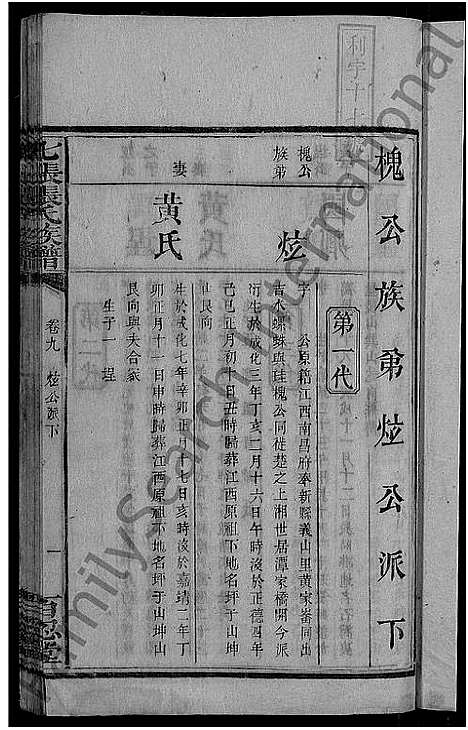 槐公族弟炫公派下
第一代
槐公族弟 炫
字 公原籍江西南昌府奉新縣義山里黄家崙同出
吉水螺蛛與珪槐公同徙楚之上湘世居潭家橋開今派
衍生於成化三年丁亥二月十六日午時没於正德四年
己巳正月初十日丑時歸葬江西原祖下地名坪于山坤
山艮向
妻 黄氏
生於成化七年辛卯正月十七日亥時没於嘉靖二年丁
卯正月十一日申時歸葬江西原祖下地名坪于山坤山
艮向與夫合冢
生子一 埕
七張張氏族譜
卷九 炫公派下
一
百忍堂
利字十
FamilySearch International